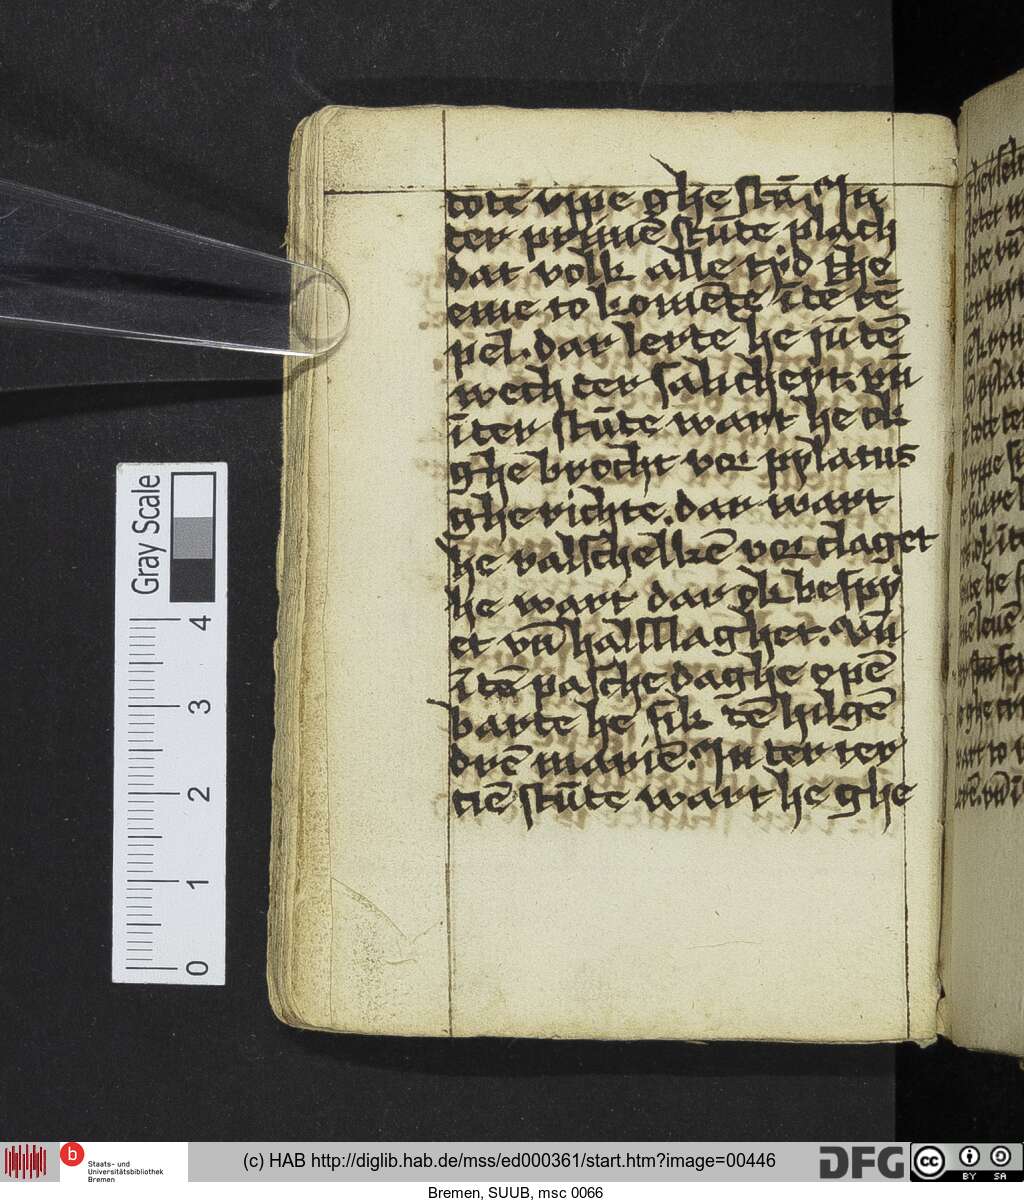 tote vppe ghe stā. In
ter primē stūte plach
dat volk alle tyd the
eme to komēte ī tē tē
pel. dar lerte he jū tē
wech ter salicheyt. vn̄
ī ter stūte wart he ok
ghe brocht vor pylatus
ghe richte. dar wart
he valschelkē vor claget
he wart dar ok bespy
et vn̄ halsslaghet. Vn̄
ī tē pasche daghe opē
barte he sik tē hilgē
drē mariē. In ter ter
ciē stūte wart he ghe
Gray Scale
4
3
2
1
0
b
Staats- und
Universitätsbibliothek
Bremen
(c) HAB http://diglib.hab.de/mss/ed000361/start.htm?image=00446
DFG
cc
BY SA
Bremen, SUUB, msc 0066